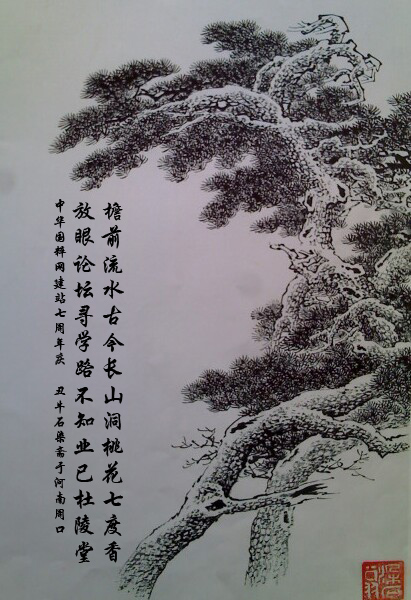 檐前流水古今长山洞桃花七度香
放眼论坛寻学路不知业已杜陵堂
中华国粹网建站七周年庆 丑牛石染斋于河南周口